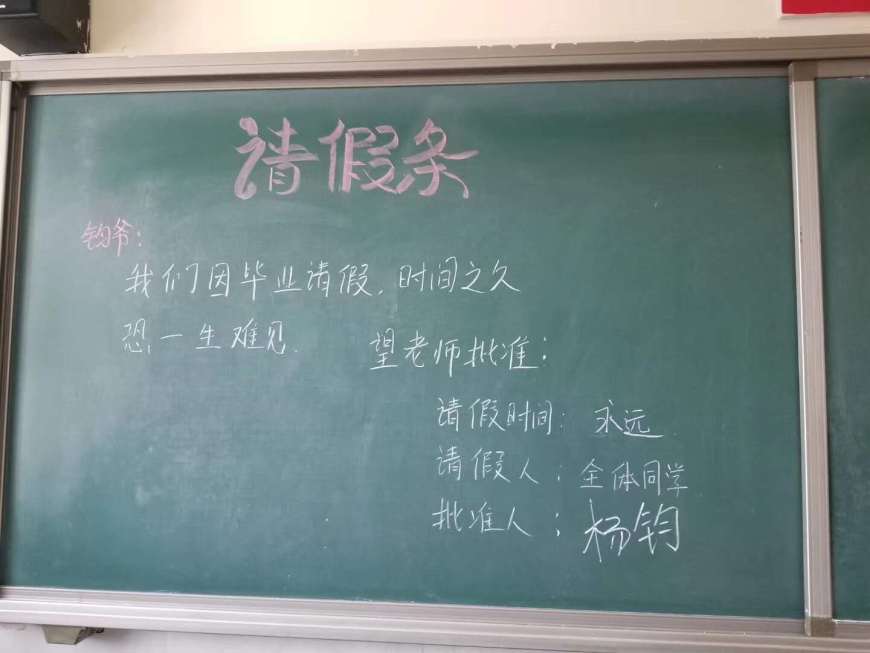 请假条
钧爷:
我们因毕业请假,时间之久
恐一生难见.
望老师批准:
请假时间: 永远
请假人: 全体同学
批准人: 杨钧